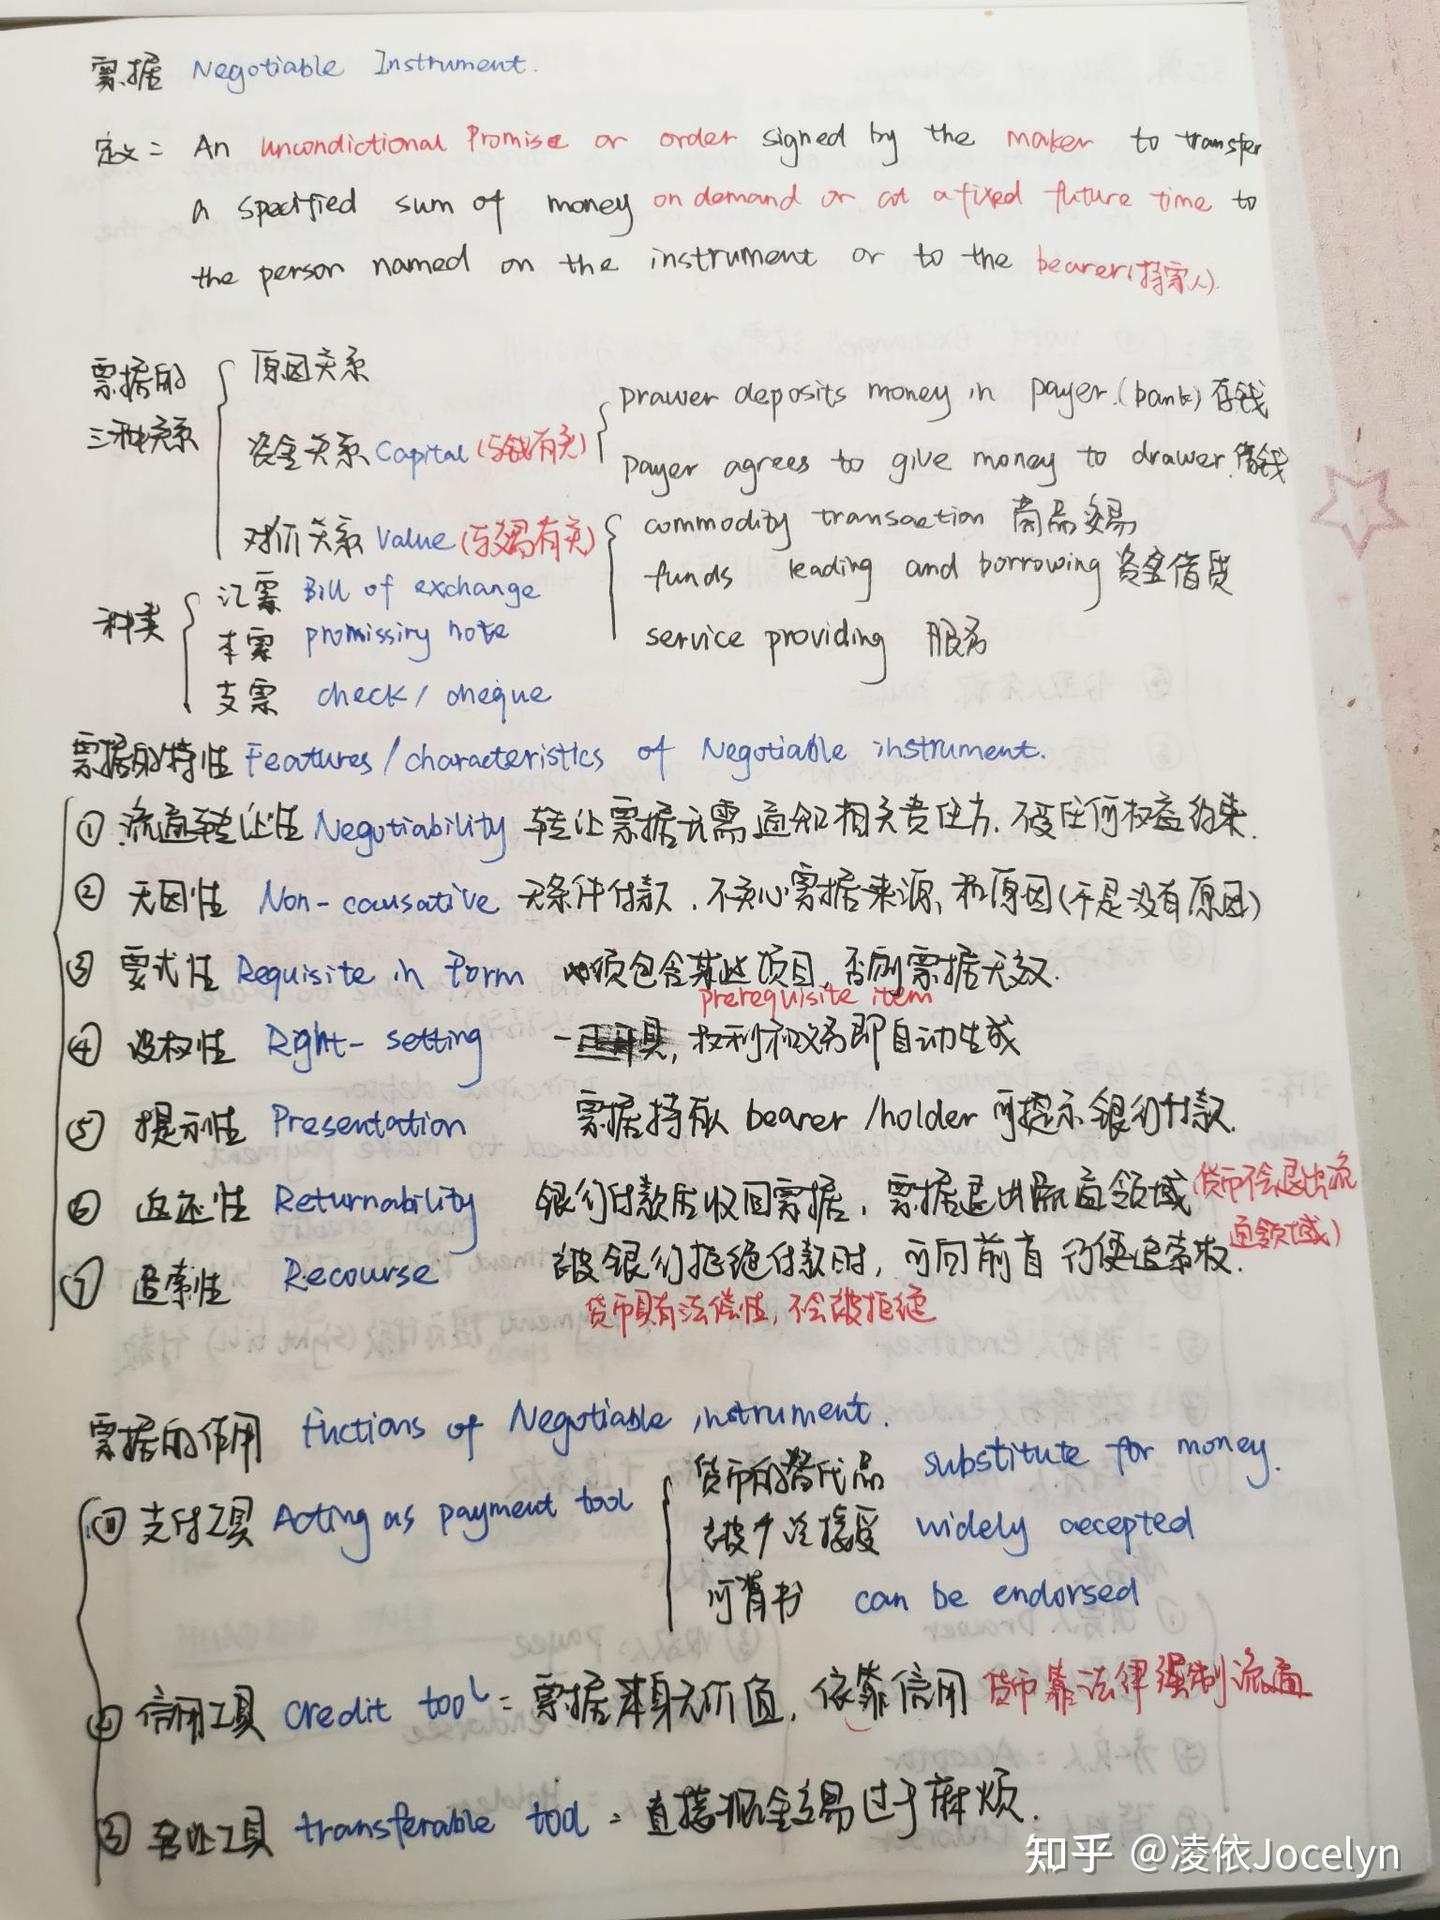 票据 Negotiable Instrument.
定义: An uncondictional Promise or order signed by the maker to transfer
a specified sum of money on demand or at a fixed future time to
the person named on the instrument or to the bearer(持票人).
票据的
三种关系
原因关系
资金关系 Capital (与钱有关)
Drawer deposits money in payer.(bank) 存钱
payer agrees to give money to drawer. 借钱
对价关系 Value (与交易有关)
commodity transaction 商品交易
funds leading and borrowing 资金借贷
service providing 服务
种类
汇票 Bill of exchange
本票 promissiry note
支票 check / cheque
票据的特性 Features/characteristics of Negotiable instrument.
① 流通转让性 Negotiability 转让票据无需通知相关责任方,不受任何权益约束.
② 无因性 Non-causative 无条件付款,不关心票据来源和原因(不是没有原因)
③ 要式性 Requisite in form 必须包含某些项目,否则票据无效.
prerequisite item
④ 设权性 Right-setting 一旦开具,权利和义务即自动生成
⑤ 提示性 Presentation 票据持有人 bearer/holder 可提示银行付款.
⑥ 返还性 Returnability 银行付款后收回票据,票据退出流通领域(货币不会退出流
通领域)
⑦ 追索性 Recourse 被银行拒绝付款时,可向前首行使追索权.
货币具有法偿性,不会被拒绝
票据的作用 fuctions of Negotiable instrument.
① 支付工具 Acting as payment tool
货币的替代品 substitute for money.
被广泛接受 widely accepted
可背书 can be endorsed
② 信用工具 credit tool = 票据本身无价值,依靠信用 货币靠法律强制流通
③ 转让工具 transferable tool = 直接现金交易过于麻烦.
知乎 @凌依Jocelyn